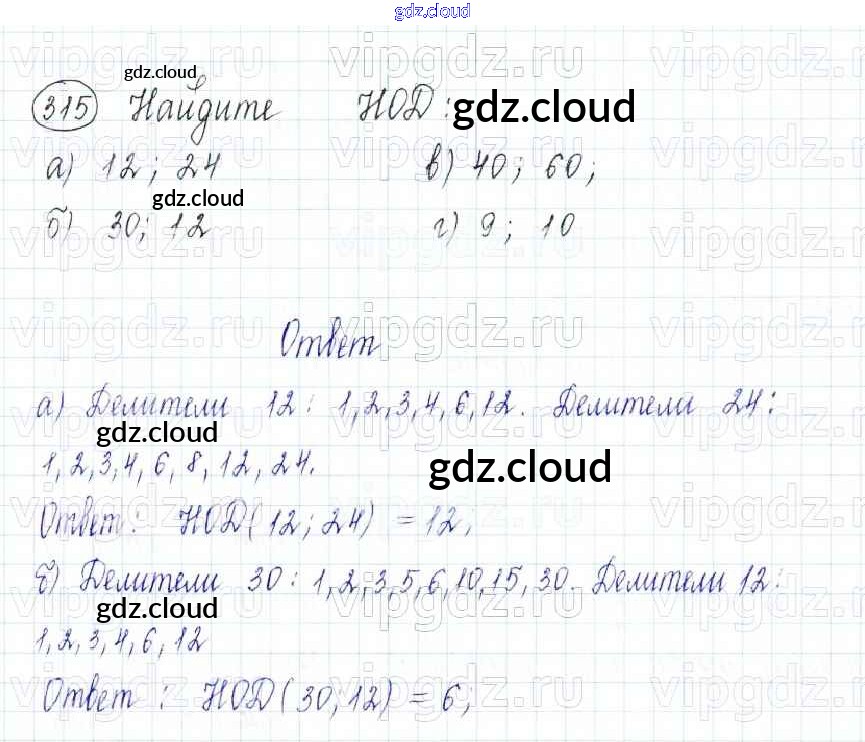 gdz.cloud
gdz.cloud
315 Найдите НОД: gdz.cloud
а) 12; 24 в) 40; 60;
gdz.cloud
б) 30; 12 г) 9; 10
vipgdz.ru
Ответ
а) Делители 12: 1,2,3,4,6,12. Делители 24:
gdz.cloud
1,2,3,4,6,8,12,24. gdz.cloud
Ответ: НОД(12;24) = 12;
б) Делители 30: 1,2,3,5,6,10,15,30. Делители 12:
gdz.cloud
1,2,3,4,6,12
Ответ: НОД(30;12) = 6;